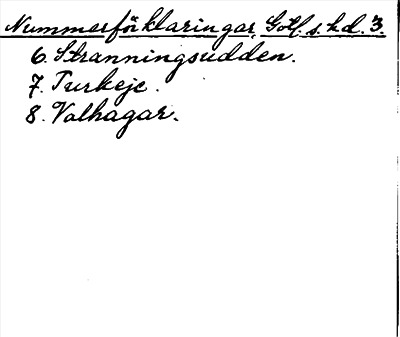 Nummerförklaringar, Gotl. s. hd. 3.
6. Stranningsudden.
7. Turkeje.
8. Valhagar.